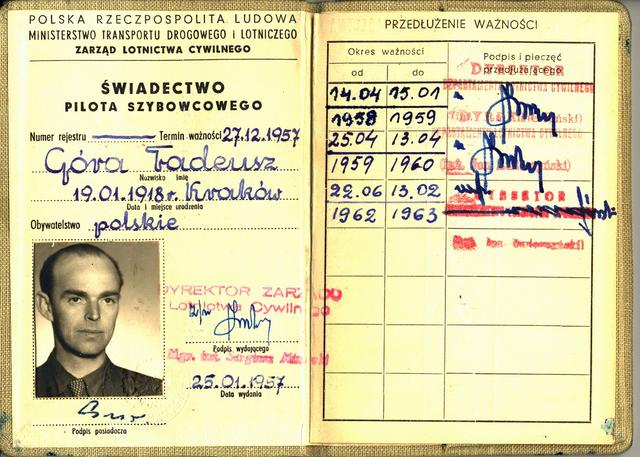 POLSKA RZECZPOSPOLITA LUDOWA
MINISTERSTWO TRANSPORTU DROGOWEGO I LOTNICZEGO
ZARZĄD LOTNICTWA CYWILNEGO
ŚWIADECTWO
PILOTA SZYBOWCOWEGO
Numer rejestru Termin ważności 27.12.1957
Góra Tadeusz
Nazwisko imię
19.01.1918 r. Kraków
Data i miejsce urodzenia
Obywatelstwo polskie
DYREKTOR ZARZĄDU
Lotnictwa Cywilnego
Podpis wydającego
Mgr. inż.
25.01.1957
Data wydania
Podpis posiadacza
PRZEDŁUŻENIE WAŻNOŚCI
Okres ważności
od do
Podpis i pieczęć
przedłużającego
DYREKTOR
DEPARTAMENTU LOTNICTWA CYWILNEGO
14.04 15.01
1958 1959
25.04 13.04
LOTNICTWA CYWILNEGO
1959 1960
22.06 13.02
DYREKTOR
1962 1963